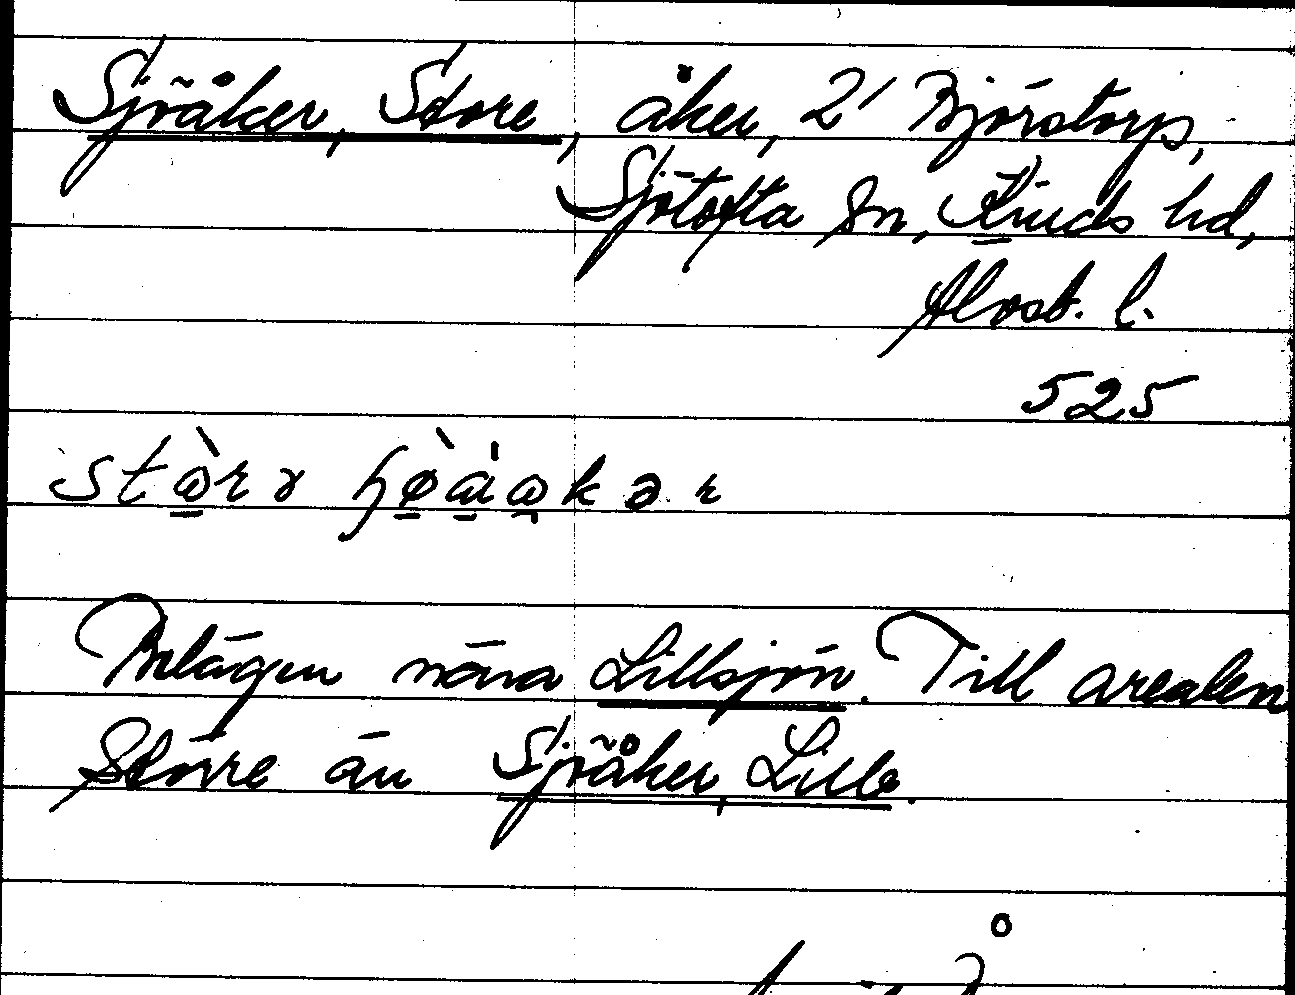 Sjöåker, Store, åker, 2' Björstorp,
Sjötofta sn, Kinds hd,
Älvsb. l.
525
Belägen nära Lillsjön. Till arealen
större än Sjöåker, Lille.